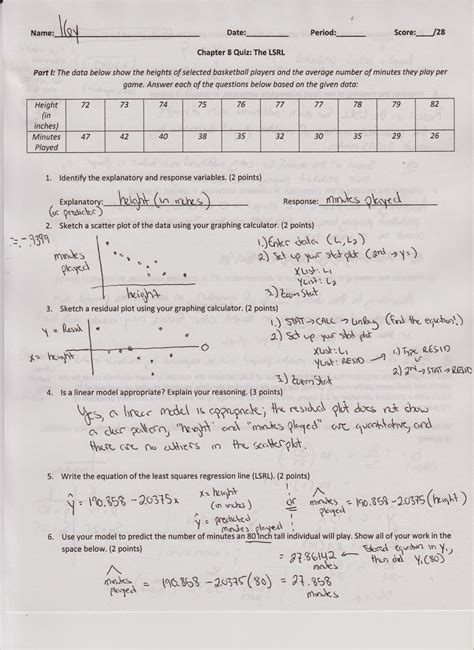 Name: Key Date: Period: Score: /28
Chapter 8 Quiz: The LSRL
Part I: The data below show the heights of selected basketball players and the average number of minutes they play per
game. Answer each of the questions below based on the given data:
Height (in inches) 72 73 74 75 76 77 77 78 79 82
Minutes Played 47 42 40 38 35 32 30 35 29 26
1. Identify the explanatory and response variables. (2 points)
Explanatory: height (in inches) Response: minutes played
(or predictor)
2. Sketch a scatter plot of the data using your graphing calculator. (2 points)
r = -.9399
minutes played
height
1.) Enter data (L1, L2)
2) Set up your stat plot (2nd → y=)
XList: L1
YList: L2
3.) ZoomStat
3. Sketch a residual plot using your graphing calculator. (2 points)
y = Resid
x = height
1.) STAT → CALC → LinReg (Find the equation!)
2) Set up your stat plot
XList: L1
YList: RESID → 1) Type RESID
2) 2nd → STAT → RESID
3.) ZoomStat
4. Is a linear model appropriate? Explain your reasoning. (3 points)
Yes, a linear model is appropriate; the residual plot does not show
a clear pattern, "height" and "minutes played" are quantitative, and
there are no outliers in the scatterplot.
5. Write the equation of the least squares regression line (LSRL). (2 points)
ŷ = 190.858 - 2.0375x x = height (in inches) or minutes played = 190.858 - 2.0375 (height)
ŷ = predicted minutes played
6. Use your model to predict the number of minutes an 80 inch tall individual will play. Show all of your work in the
space below. (2 points)
= 27.86142 ← Stored equation in Y1, then did Y1(80)
minutes played = 190.858 - 2.0375 (80) = 27.858 minutes